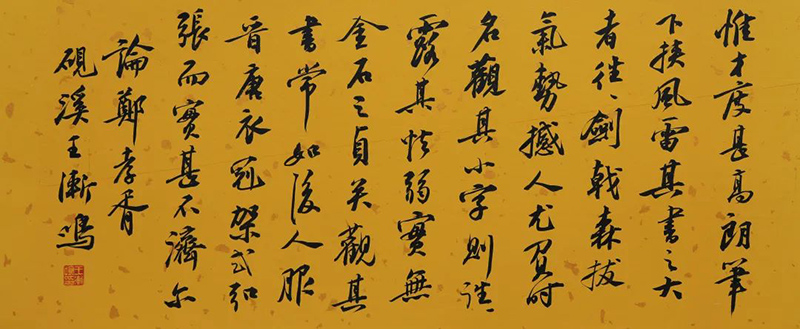 惟才度甚高朗筆
下挾風雷其書之大
者往往劍戟森拔
氣勢撼人尤負時
名觀其小字則往往
露其怯弱實無
金石之貞矣觀其
書常如後人服
晉唐衣冠架式弘
張而實甚不濟尔
論鄭孝胥
硯溪王漸鴻